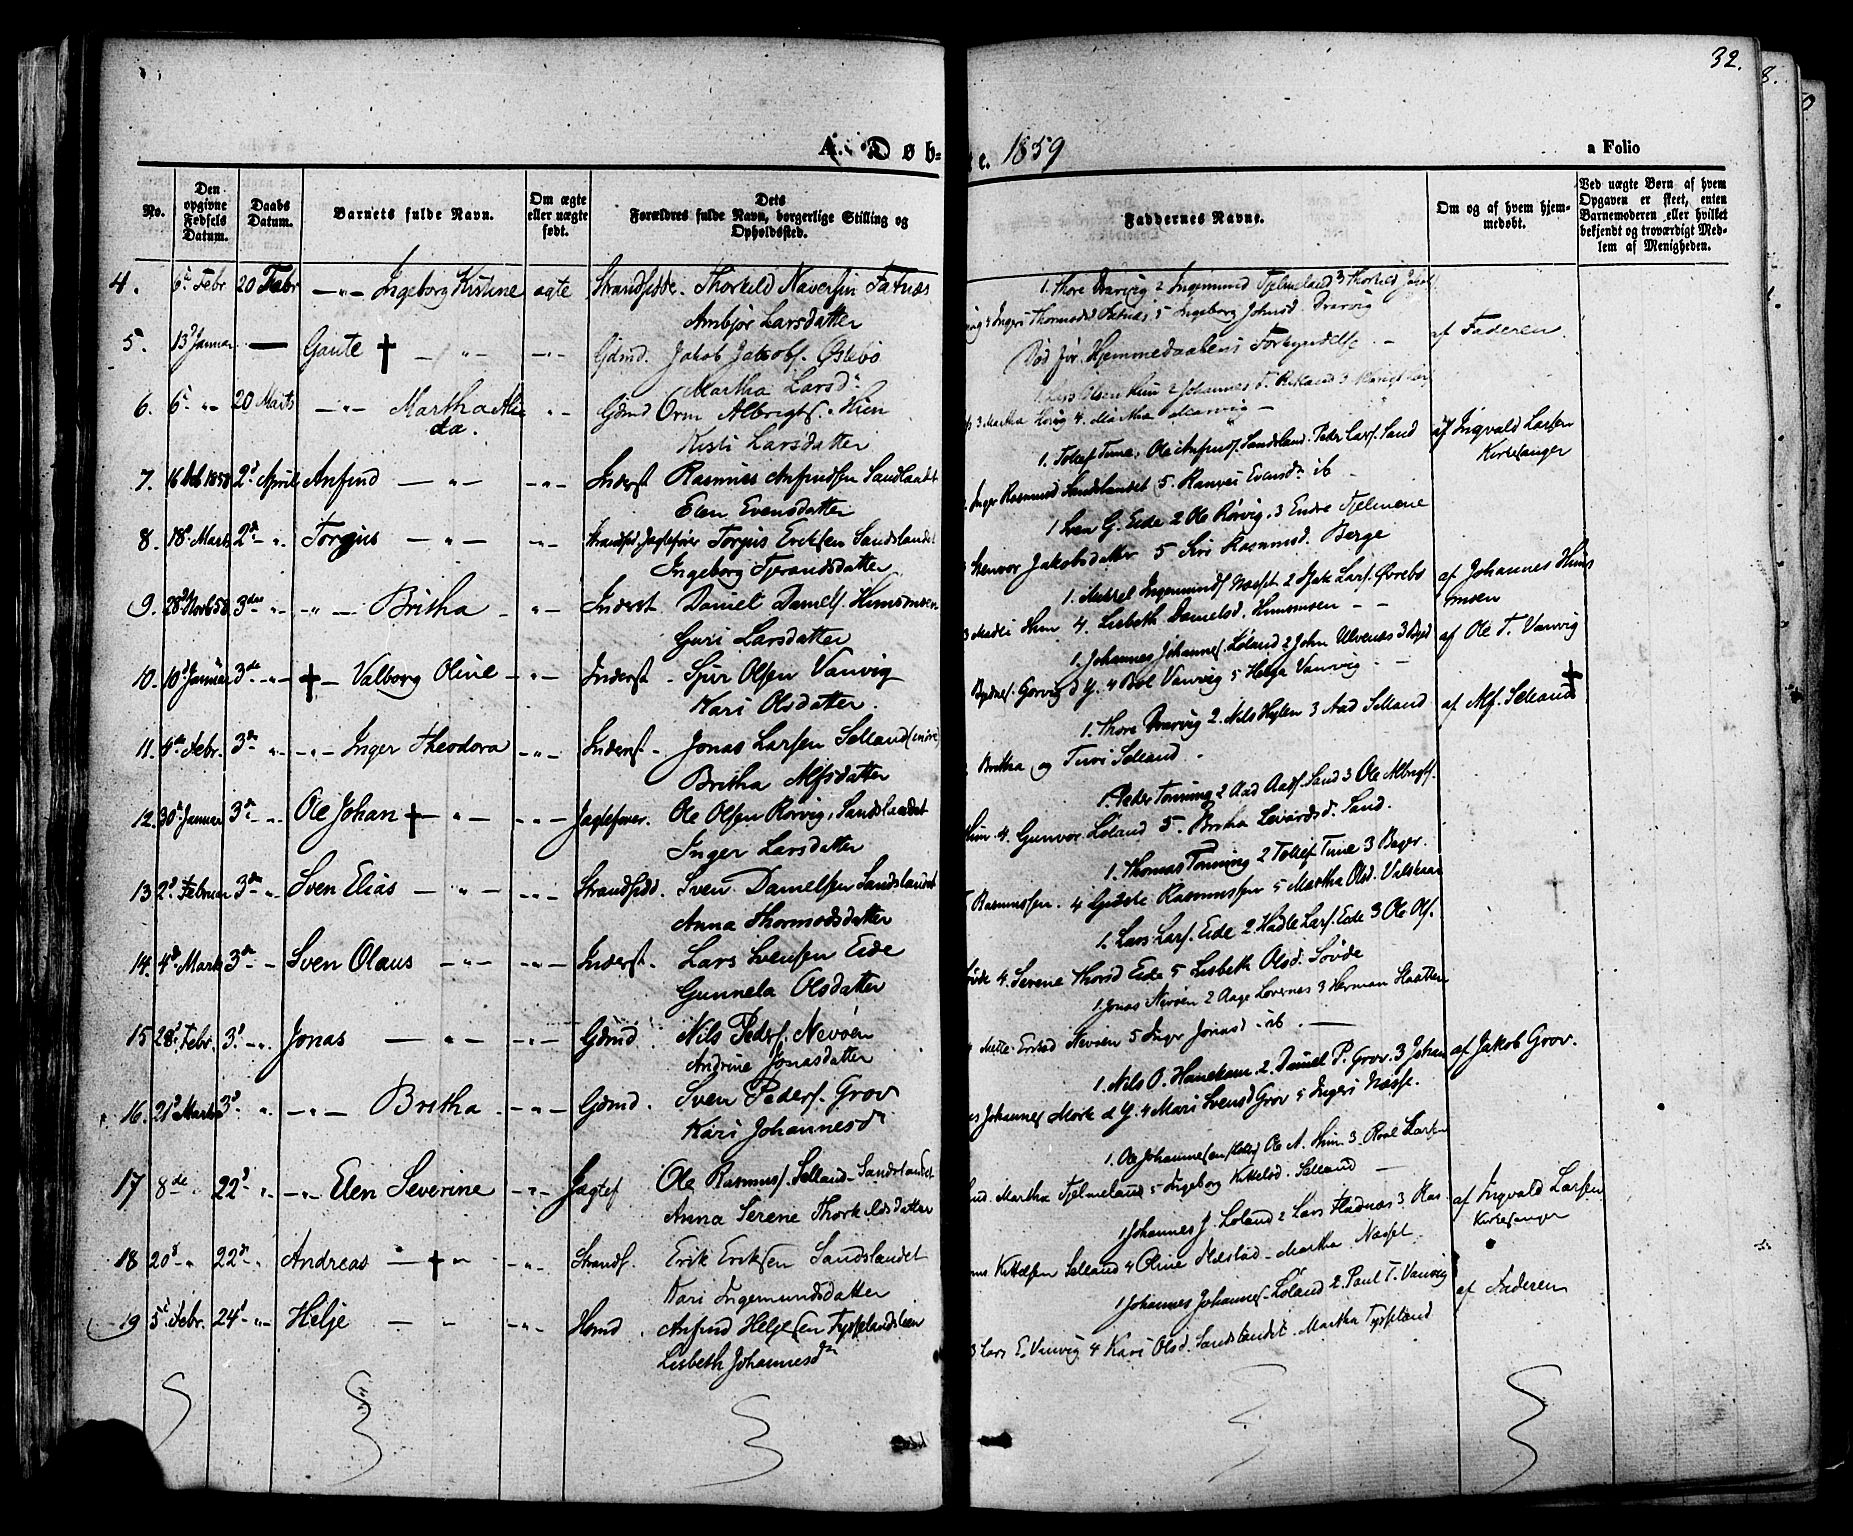 32.
A. Døb-
e. 1859
a Folio
No.
Den opgivne Fødsels Datum.
Daabs Datum.
Barnets fulde Navn.
Om ægte eller uægte født.
Dets Forældres fulde Navn, borgerlige Stilling og Opholdssted.
Faddernes Navne.
Om og af hvem hjemmedøbt.
Ved uægte Børn af hvem Opgaven er skeet, enten Barnemoderen eller hvilket bekjendt og troværdigt Medlem af Menigheden.
4. 6te Febr 20 Febr —"— Ingeborg Kistine ægte Strandsidde. Thorkild Naversen Fatnæs
Ambjør Larsdatter
1. Thore Drarvig 2 Ingemund Fjelmeland 3 Thorkild
4 Ingeri Thormodsd Fatnæs 5 Ingeborg Johnsd Drarvig
5. 13d Januar — Gaute † —"— —"— Gdmd. Jakob Jakobs. Østebø
Martha Larsd.
Død før Hjemmedaabens Forkyndelse — af Faderen
6. 6te " 20 Marts —"— Martha Alida. —"— Gdmd Orm Albrigts. Hiim
Kisti Larsdatter
3 Martha Hovig 4. Martha
af Ingvald Larsen Kirkesanger
7. 16 1858 2d April Anfind —"— —"— Inderst Rasmus Anfindsen Sandslandet
Elen Evensdatter
1. Tollef Tune, Ole Anfinds. Sandsland. Peder Lars. Sand
Inger Rasmusd Sandslandet 5. Ranvei Evensdr ib —
8. 18de Marts 2den " Torgius —"— —"— Strandsid Jagtefører Torjus Eriksen Sandslandet
Ingeborg Tjerandsdatter
1 Sven G. Eide 2 Ole Rørvig. 3 Endre Fjelmene
Jakobsdatter 5 Siri Rasmusd. Berge
9. 28d Novb 58 3die " —"— Britha —"— Inderst Daniel Daniels Hiimsmoen
Guri Larsdatter
1. Ingemunds. Næsset 2 Lars. Øvrebø
3 Madli Hiim 4. Lisbeth Danielsd. Hiimsmoen — —
af Johannes Hiimsmoen
10. 10d Januar 3de —"— † Valborg Oline —"— Inderst. Sjur Olsen Vanvig
Kari Olsdatter.
1. Johannes Johannes. Løland 2 John Ulvenæs 3
Gorvig d Y. 4 Bol Vanvig 5 Helga Vanvig —
af Ole T. Vanvig
†
11. 4de Febr. 3de " —"— Inger Theodora —"— Inderst. Jonas Larsen Selland
Britha Alfsdatter
1. Thore Drarvig 2. Nils Hylen 3 Aad Selland
Britha og Turi Selland.
af Alf. Selland
12. 30te Januar 3de —"— Ole Johan † —"— —"— Jagtefører. Ole Olsen Rørvig, Sandslandet
Inger Larsdatter
1. Peder Tønning 2 Aad Aads. Sand 3 Ole Albrigts.
Hiim 4. Gunvor Løland 5. Britha Sevardsd. Sand.
13. 2d Februar 3de " Sven Elias —"— —"— Strandsidd. Sven Danielsen Sandslandet
Anna Thormodsdatter
1. Thomas Tønning 2 Tollef Tune 3
Rasmussen. 4 Rasmussen 5 Martha Olsd.
14. 4de Marts 3de — Sven Olaus —"— —"— Inderst. Lars Svensen Eide
Gunnela Olsdatter
1. Lars Lars. Eide 2. Hadle Lars. Eide 3 Ole Ols.
4. Serene Thorsd Eide 5 Lisbeth Olsd. Søvde
15. 28d Febr. 3d —"— Jonas —"— —"— Gdmd Nils Peders. Nevøen
Andrine Jonasdatter
1. Jonas Nevøen 2 Aage Lovernes 3 Herman
Mette Nevøen 5 Inger Jonasd. ib.
16. 21d Marts 3d " —"— Britha —"— Gdmd. Sven Peders. Grov
Kari Johannesd.
1. Nils O. Hanekam 2. Daniel P. Grov. 3 Johan
Johannes Mork d Y. 4 Mari Svensd Grov 5 Ingeri Næsse.
af Jakob Grov.
17 8de " 22d " —"— Elen Severine —"— Jagtef Ole Rasmus. Selland. Sandslandet
Anna Serene Thorkildsdatter
1. Ole Johannesen 2 Ole A. Hiim 3. Roal Larsen
Martha Fjelmeland 5 Ingeborg Kittelsd. Selland —
af Ingvald Larsen Kirkesanger
18 20d " 22de " Andreas —†" —"— Strands. Erik Eriksen Sandslandet
Kari Ingemundsdatter
1 Johannes J. Løland 2 Lars Fladnæs 3 Ras-
mus Kittelsen Selland 4 Oline — Martha Næsset
19 5te Febr. 24d —"— Helje — " —"— Hsmd. Anfind Heljesen Tysselandslien
Lisbeth Johannesdr
1 Johannes Johannes. Løland 2. Paul T. Vanvig
3 Lars E. Vanvig 4 Kari Olsd. Sandslandet. Martha Tysseland
af Faderen